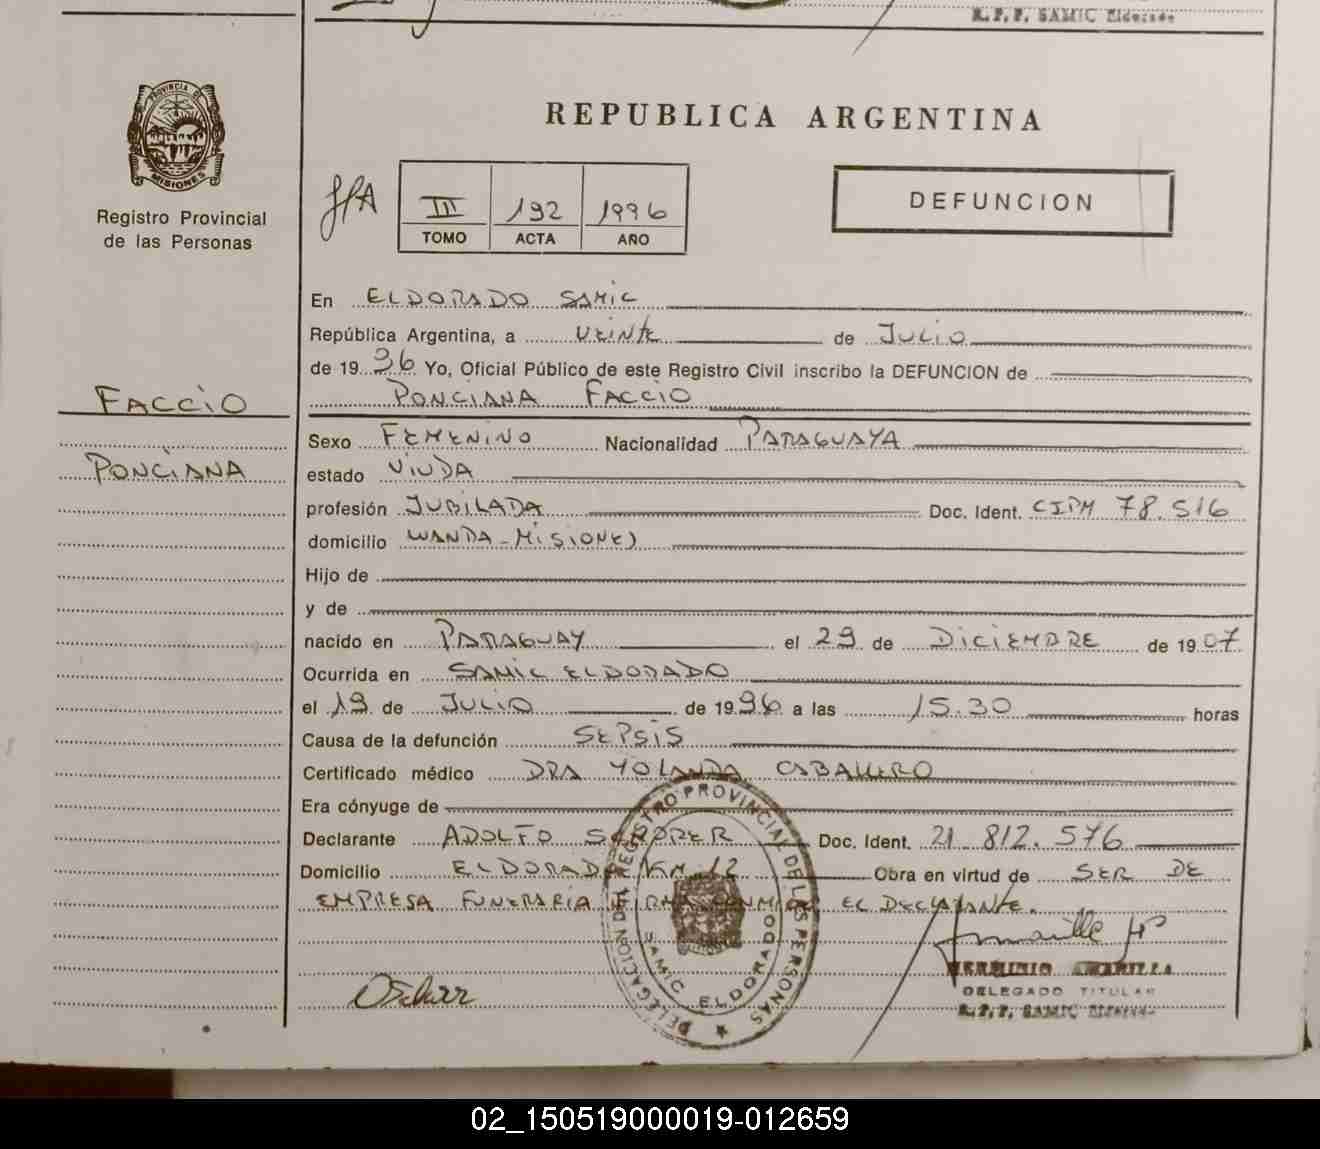 R.P.P. SAMIC Eldorado
PROVINCIA DE
MISIONES
Registro Provincial
de las Personas
REPUBLICA ARGENTINA
III 192 1996
TOMO ACTA AÑO
DEFUNCION
En ELDORADO SAMIC
República Argentina, a VEINTE de JULIO
de 19 96 Yo, Oficial Público de este Registro Civil inscribo la DEFUNCION de
PONCIANA FACCIO
FACCIO
PONCIANA
Sexo FEMENINO Nacionalidad PARAGUAYA
estado VIUDA
profesión JUBILADA Doc. Ident. CIPM 78.516
domicilio WANDA - MISIONES
Hijo de
y de
nacido en PARAGUAY el 29 de DICIEMBRE de 19 07
Ocurrida en SAMIC ELDORADO
el 19 de JULIO de 19 96 a las 15.30 horas
Causa de la defunción SEPSIS
Certificado médico DRA YOLANDA CABALLERO
Era cónyuge de
Declarante ADOLFO Doc. Ident. 21.812.576
Domicilio ELDORADO KM 12 Obra en virtud de SER DE
EMPRESA FUNERARIA FIRMA CONMIGO EL DECLARANTE.
DELEGACION DEL REGISTRO PROVINCIAL DE LAS PERSONAS
SAMIC ELDORADO
HERMINIO AMARILLA
DELEGADO TITULAR
R.P.P. SAMIC Eldorado
02_150519000019-012659